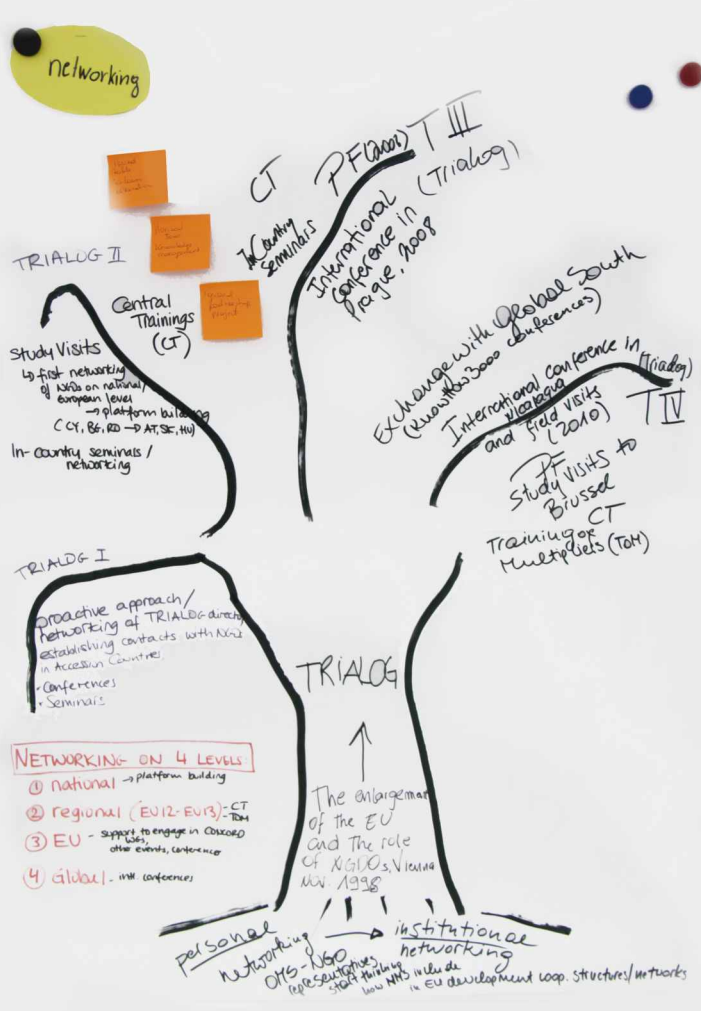 networking
CT
PF (2008) T III
(Trialog)
In Country
seminars
International
conference in
Prague, 2008
TRIALOG II
Central
Trainings
(CT)
Study Visits
↳ first networking
of NGOs on national/
european level
→ platform building
In-country seminars /
networking
Exchange with Global South
(KnowHow3000 conferences)
International conference in (Trialog)
Nicaragua
and field visits T IV
(2010)
PF
Study visits to
Brussel
CT
Training of
Multipliers (TOM)
TRIALOG I
proactive approach/
networking of TRIALOG
establishing contacts with NGOs
in Accession Countries
- Conferences
- Seminars
TRIALOG
NETWORKING ON 4 LEVELS:
① national → platform building
② regional (EU12-EU13) - CT
TOM
③ EU - support to engage in CONCORD
WGs,
other events, conferences
④ Global - intl. conferences
The enlargement
of the EU
and The role
of NGDOs, Vienna
Nov. 1998
personal
networking
→ institutional
networking
NGO
representatives
start thinking
how NMS include
in EU development coop. structures/networks